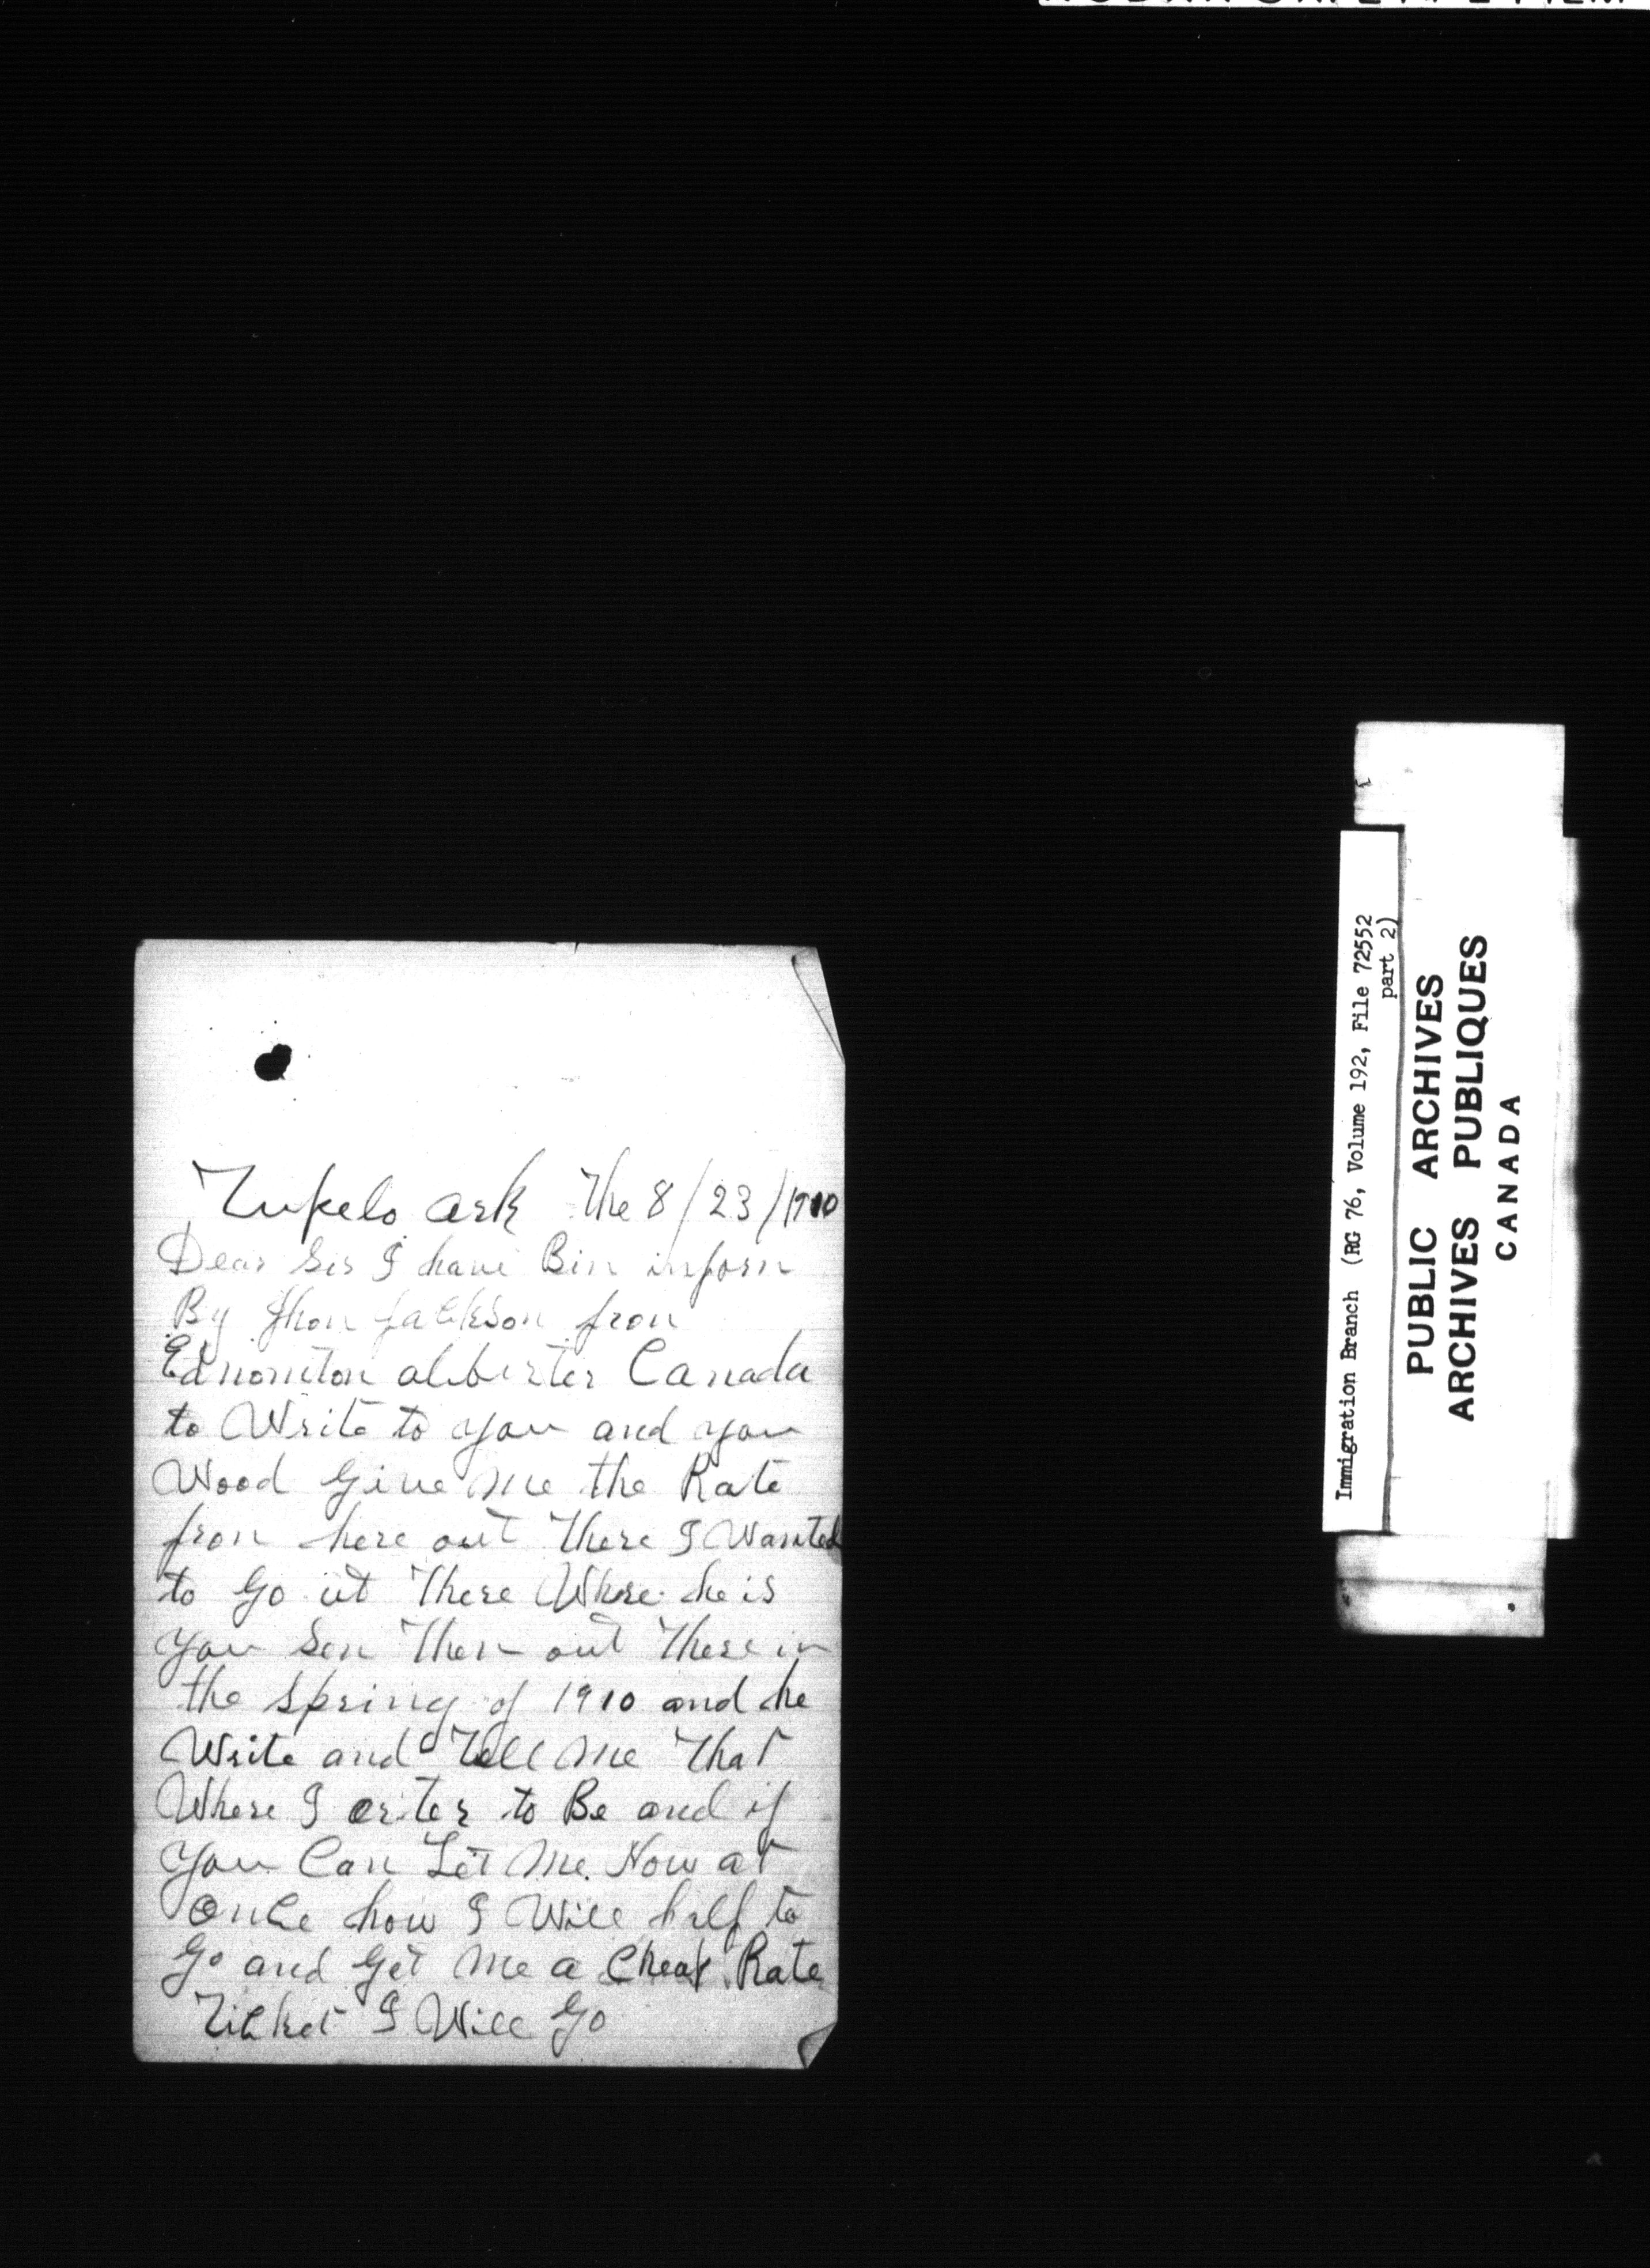 Tupelo ark the 8/23/1910
Dear Sir I have Bin inforn
By Jhon Jackson fron
Edmonton aliberter Canada
to Write to you and you
Wood Give Me the Rate
fron here out There I Wanted
to Go ut There Where he is
you Sen Then out There in
the Spring of 1910 and he
Write and Tell Me That
Where I orter to Be and if
you Can Let Me Now at
Once how I Will half to
Go and Get Me a Cheap Rate
Ticket I Will Go
Immigration Branch (RG 76, Volume 192, File 72552
part 2)
PUBLIC ARCHIVES
ARCHIVES PUBLIQUES
CANADA